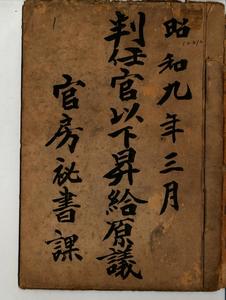 昭和九年三月
判任官以下昇給原議
官房祕書課